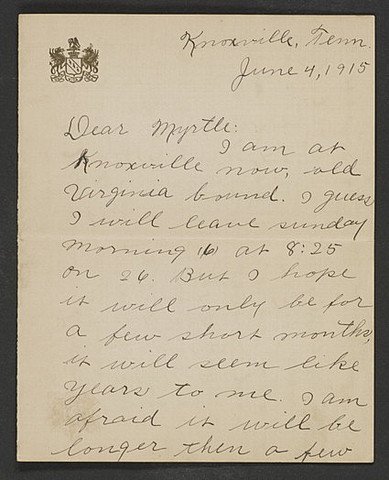 Knoxville, Tenn.
June 4, 1915
Dear Myrtle:
I am at
Knoxville now, old
Virginia bound. I guess
I will leave sunday
morning (6) at 8:25
on 26. But I hope
it will only be for
a few short months,
it will seem like
years to me. I am
afraid it will be
longer then a few